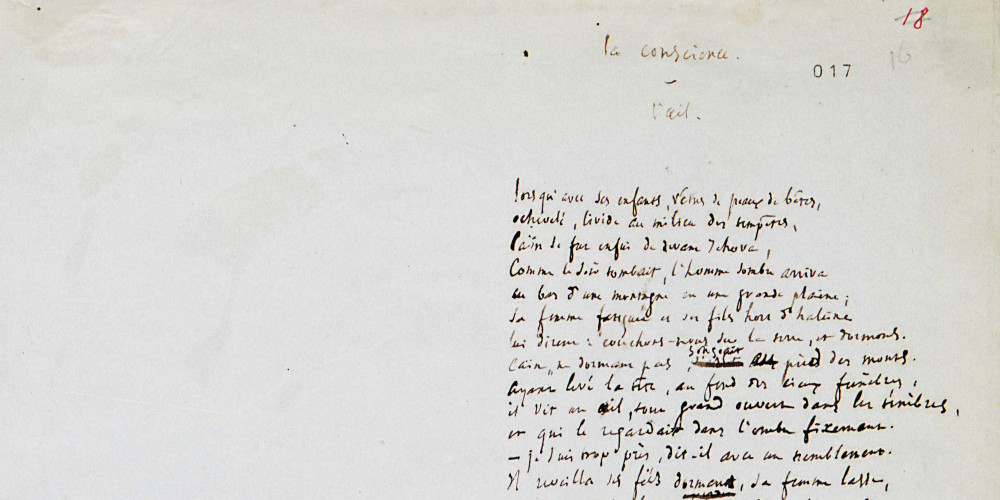 18
la conscience.
16
017
l'œil.
lorsqu'avec ses enfants, vêtus de peaux de bêtes,
échevelé, livide au milieu des tempêtes,
Caïn se fut enfui de devant Jéhova,
Comme le soir tombait, l'homme sombre arriva
au bas d'une montagne en une grande plaine;
sa femme fatiguée et ses fils hors d'haleine
lui dirent: couchons-nous sur la terre, et dormons.
Caïn, ne dormant pas, songeait au pied des monts.
ayant levé la tête, au fond des cieux funèbres,
il vit un œil, tout grand ouvert dans les ténèbres,
et qui le regardait dans l'ombre fixement.
— je suis trop près, dit-il avec un tremblement.
Il réveilla ses fils dormant, sa femme lasse,